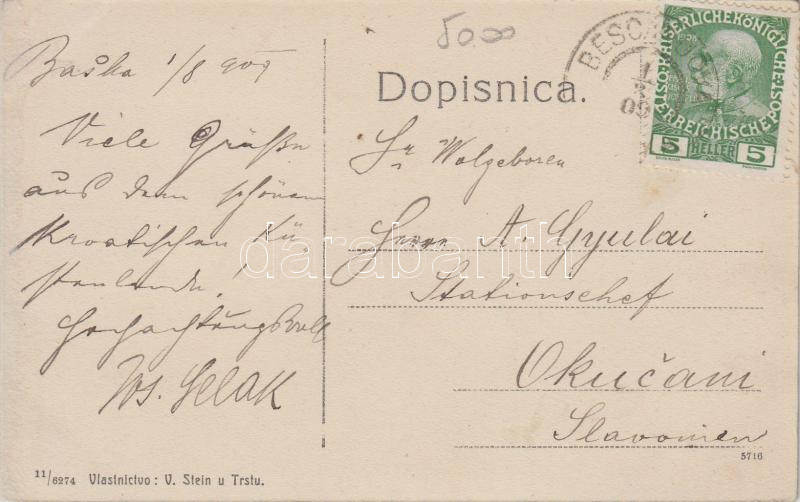 5000
Baška 1/8 909
Viele Grüße
aus dem schönen
Kroatischen Kü-
stenlande!
Hochachtungsvoll
Jos. Gelak
Dopisnica.
Sr Wolgeboren
Herrn A. Gyulai
Stationschef
Okučani
Slavonien
KAISERLICHE KÖNIGLICHE
ÖSTERREICHISCHE POST
1908
5 HELLER 5
BESCA
1
09
darabanth
11/6274 Vlastnictvo: V. Stein u Trstu.
5716